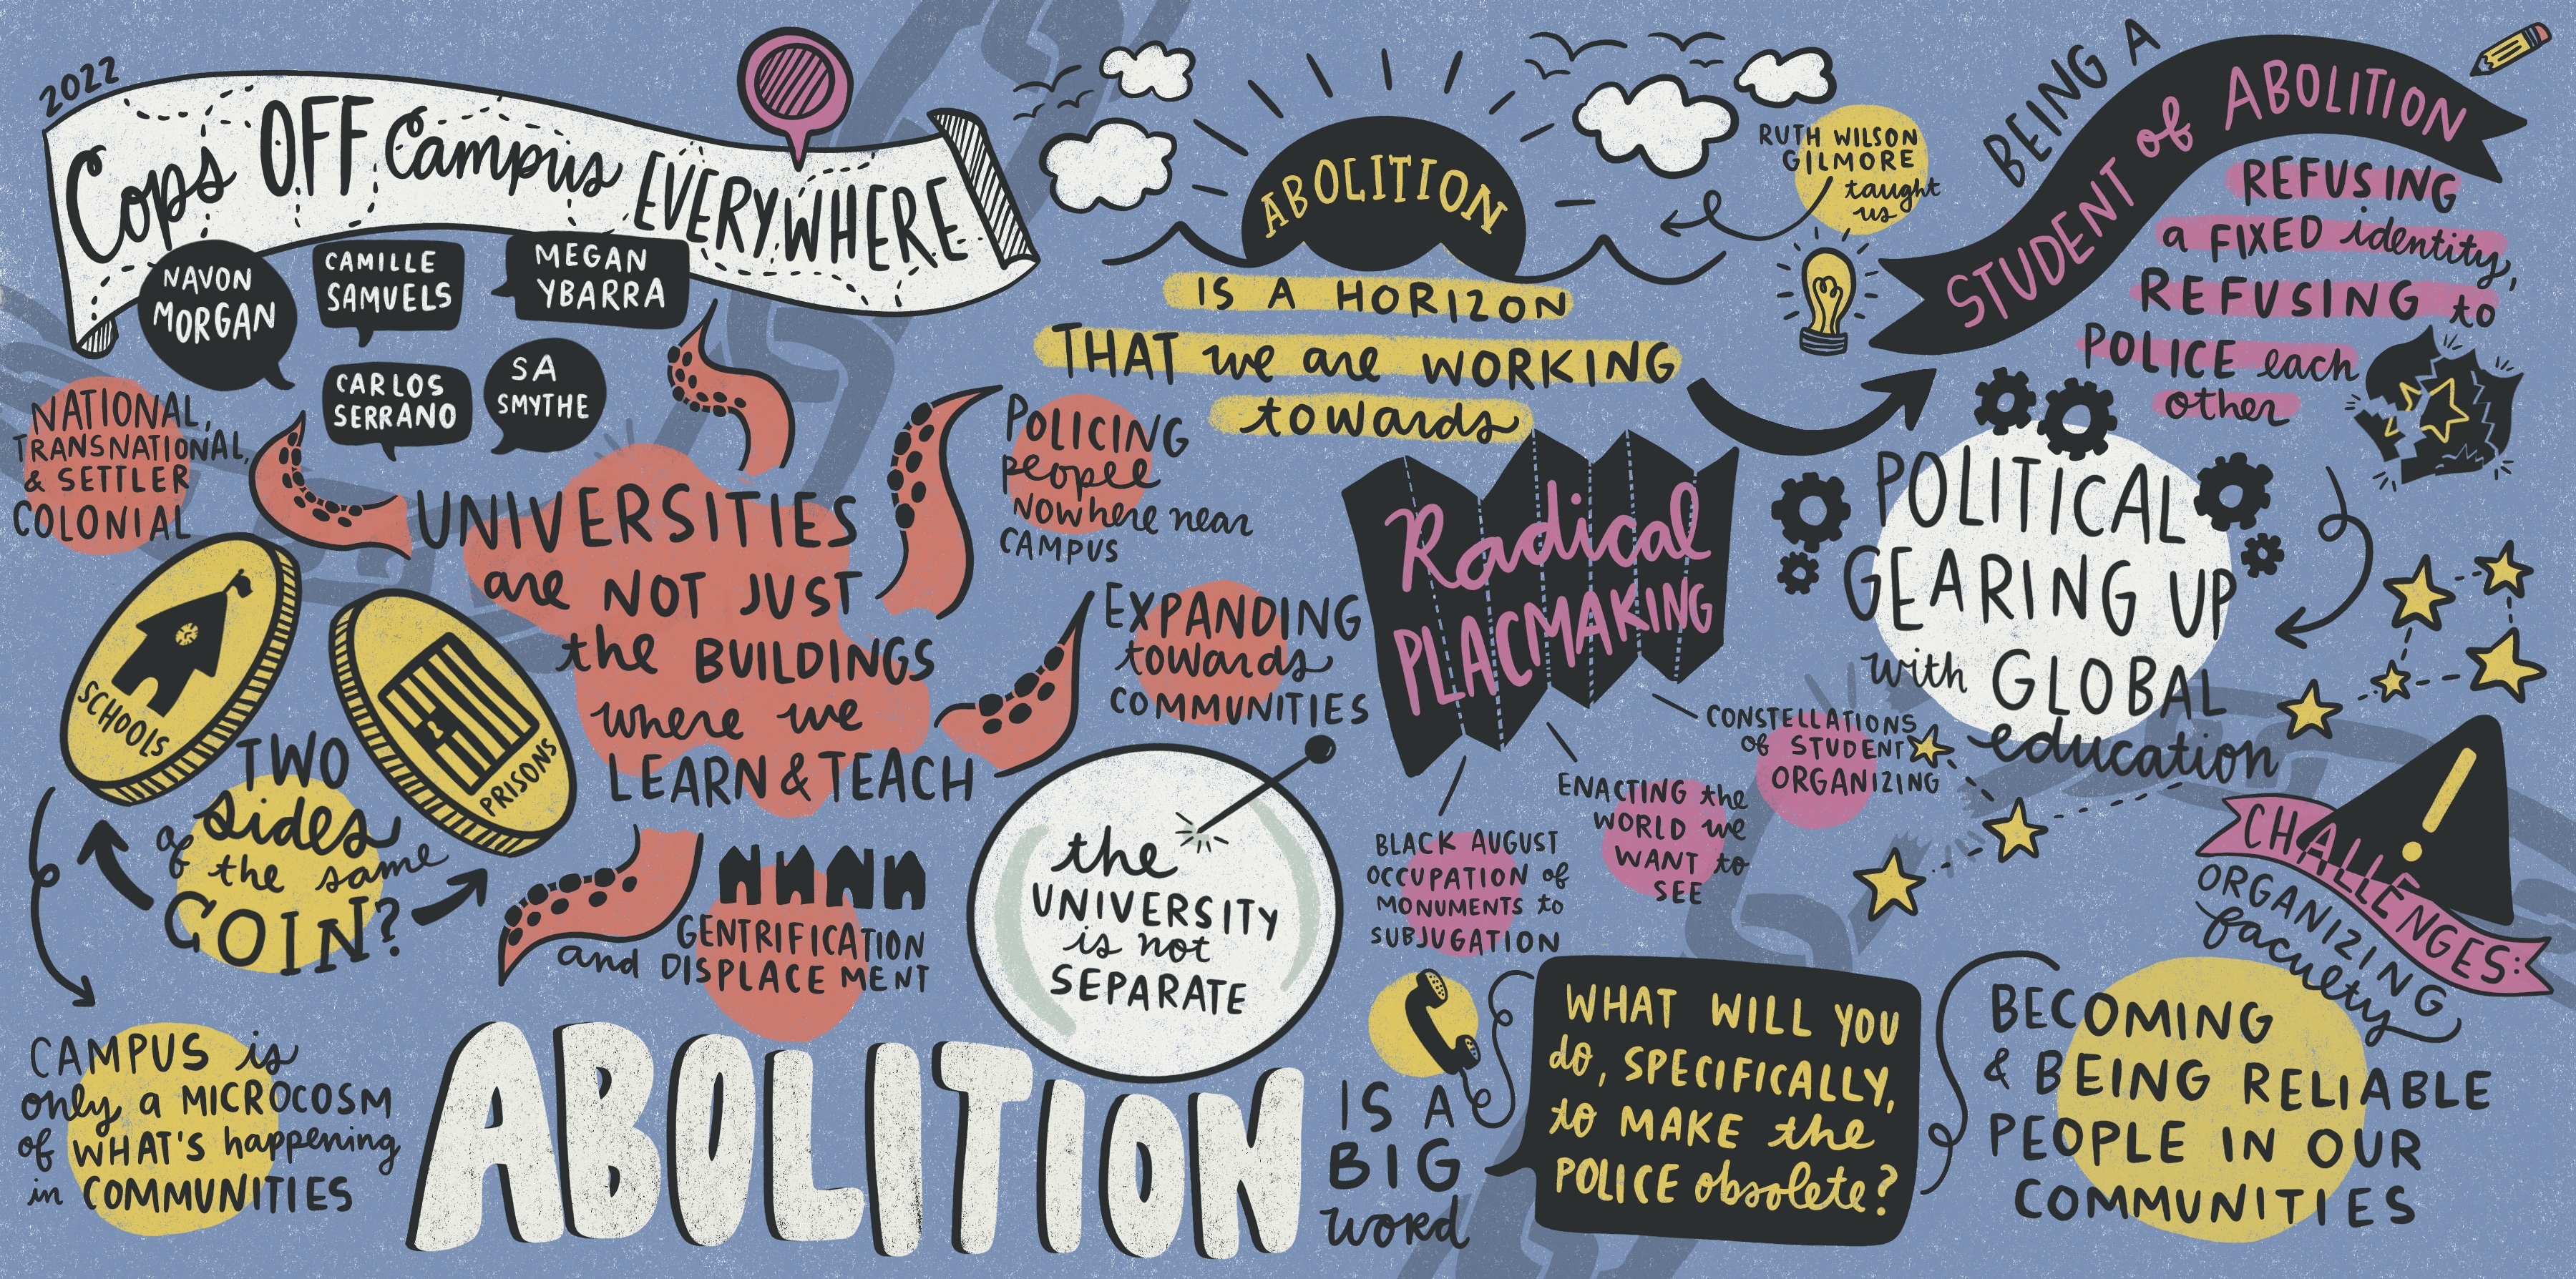 2022
Cops OFF Campus EVERYWHERE
NAVON
MORGAN
CAMILLE
SAMUELS
MEGAN
YBARRA
CARLOS
SERRANO
SA
SMYTHE
NATIONAL,
TRANSNATIONAL,
& SETTLER
COLONIAL
UNIVERSITIES
are NOT JUST
the BUILDINGS
where we
LEARN & TEACH
POLICING
people
NOWHERE near
CAMPUS
EXPANDING
towards
COMMUNITIES
and GENTRIFICATION
DISPLACEMENT
SCHOOLS
PRISONS
TWO
sides
of the same
COIN?
CAMPUS is
only a MICROCOSM
of WHAT'S happening
in COMMUNITIES
the
UNIVERSITY
is not
SEPARATE
ABOLITION
IS A HORIZON
THAT we are WORKING
towards
RUTH WILSON
GILMORE
taught
us
BEING A
STUDENT of ABOLITION
REFUSING
a FIXED identity,
REFUSING to
POLICE each
other
Radical
PLACMAKING
BLACK AUGUST
OCCUPATION of
MONUMENTS to
SUBJUGATION
ENACTING the
WORLD we
WANT to
SEE
CONSTELLATIONS
of STUDENT
ORGANIZING
POLITICAL
GEARING UP
with GLOBAL
education
CHALLENGES:
ORGANIZING
faculty
ABOLITION
IS A
BIG
word
WHAT WILL YOU
do, SPECIFICALLY,
to MAKE the
POLICE obsolete?
BECOMING
& BEING RELIABLE
PEOPLE IN OUR
COMMUNITIES